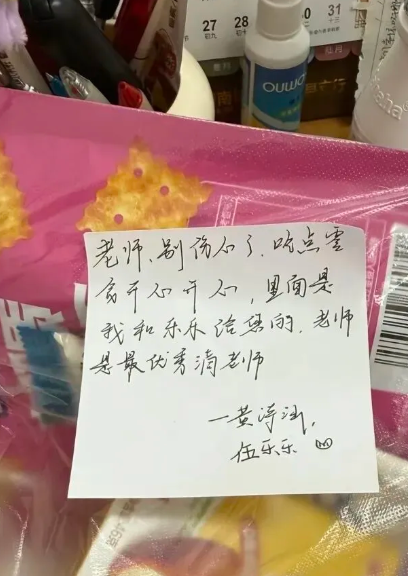 27 28 30 31
初九 初十 十三
OUWO
老师、别伤心了、吃点零
食开心开心，里面是
我和乐乐给您的、老师
是最优秀滴老师
一黄
伍乐乐